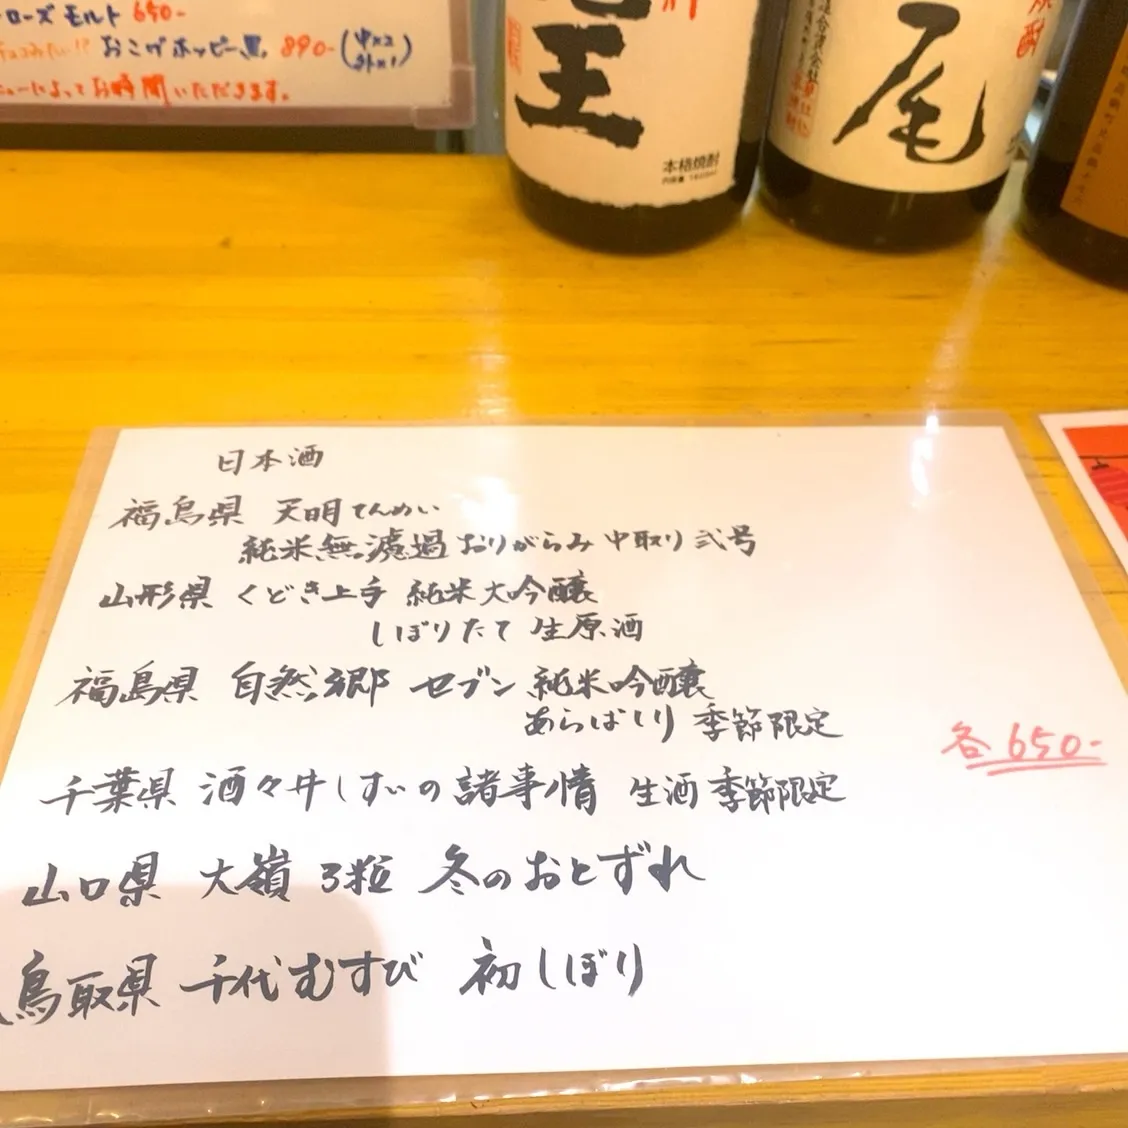 ローズ モルト 650-
おこげ ホッピー黒 890- (中×2 外×1)
ューによってお時間いただきます。
王
本格焼酎
尾
焼酎
日本酒
福島県 天明 てんめい
純米無濾過 おりがらみ 中取り 弐号
山形県 くどき上手 純米大吟醸
しぼりたて 生原酒
福島県 自然郷 セブン 純米吟醸
あらばしり 季節限定
各650-
千葉県 酒々井しすいの諸事情 生酒 季節限定
山口県 大嶺 3粒 冬のおとずれ
鳥取県 千代むすび 初しぼり